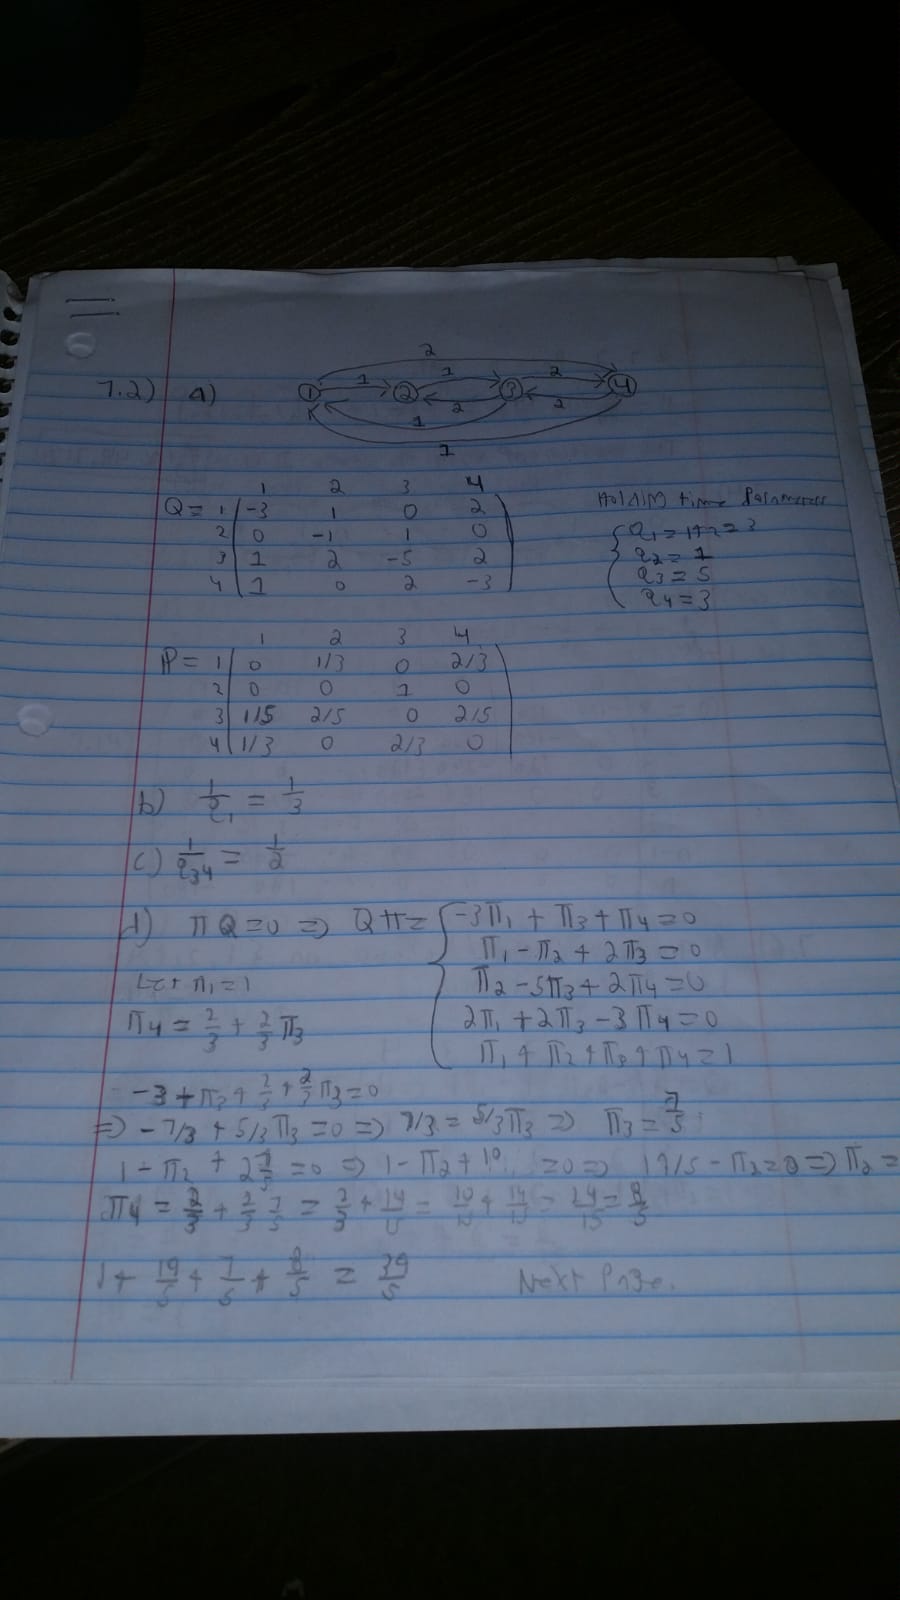 7.2) a)
2
1 1 2
1 2 3 4
2 2
1
1
1 2 3 4
Q = 1 -3 1 0 2
2 0 -1 1 0
3 1 2 -5 2
4 1 0 2 -3
Holding time Parameters
q1 = 1+2 = 3
q2 = 1
q3 = 5
q4 = 3
1 2 3 4
P = 1 0 1/3 0 2/3
2 0 0 1 0
3 1/5 2/5 0 2/5
4 1/3 0 2/3 0
b) 1/q1 = 1/3
c) 1/q34 = 1/2
d) πQ = 0 => Qπ = -3π1 + π3 + π4 = 0
π1 - π2 + 2π3 = 0
π2 - 5π3 + 2π4 = 0
2π1 + 2π3 - 3π4 = 0
π1 + π2 + π3 + π4 = 1
Let π1 = 1
π4 = 2/3 + 2/3 π3
-3 + π3 + 2/3 + 2/3 π3 = 0
=> -7/3 + 5/3 π3 = 0 => 7/3 = 5/3 π3 => π3 = 7/5
1 - π2 + 2 7/5 = 0 => 1 - π2 + = 0 => 19/5 - π2 = 0 => π2 =
π4 = 2/3 + 2/3 7/5 = 2/3 + 14/15 = 10/15 + 14/15 = 24/15 = 8/5
1 + 19/5 + 7/5 + 8/5 = 39/5 Next Page.